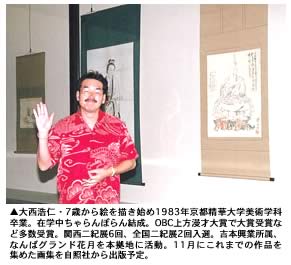 ▲大西浩仁・7歳から絵を描き始め1983年京都精華大学美術学科
卒業。在学中ちゃらんぽらん結成。OBC上方漫才大賞で大賞受賞な
ど多数受賞。関西二紀展6回、全国二紀展2回入選。吉本興業所属、
なんばグランド花月を本拠地に活動。11月にこれまでの作品を
集めた画集を自照社から出版予定。